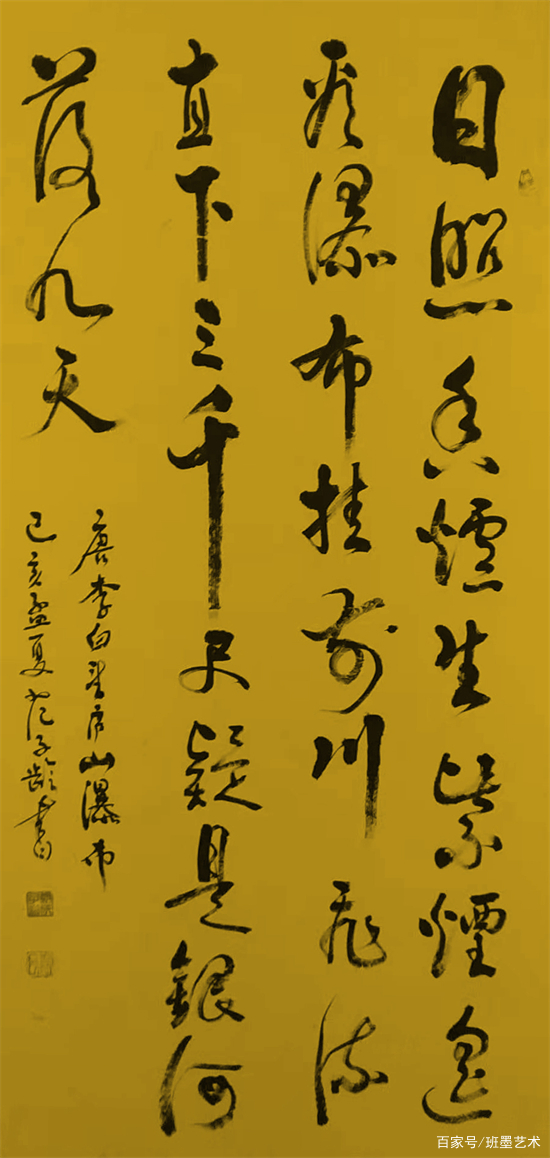 日照香爐生紫煙遙
看瀑布挂前川飛流
直下三千尺疑是銀河
落九天
唐李白望庐山瀑布
己亥孟夏子齡書
百家号/班墨艺术